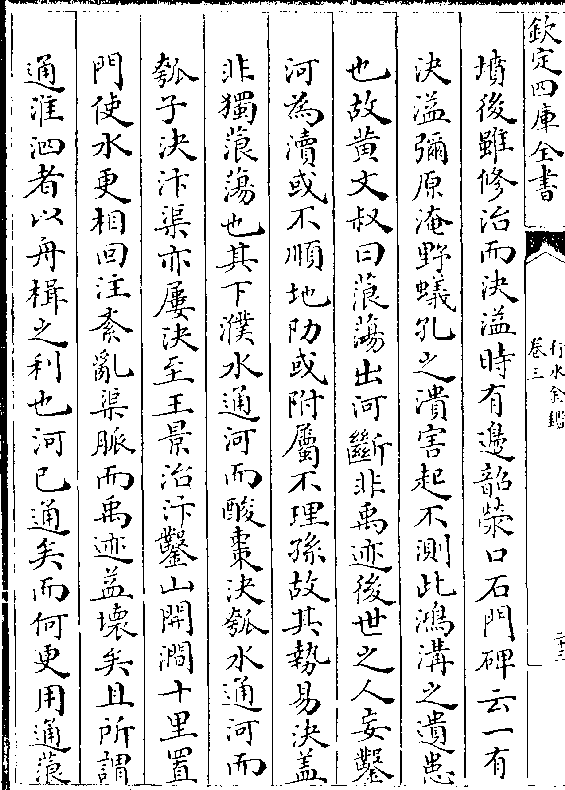 欽定四庫全書
行水金鑑
卷三
二十三
墳後雖修治而決溢時有邊韶滎口石門碑云一有
決溢彌原淹野蟻孔之潰害起不測此鴻溝之遺患
也故黃文叔曰蒗蕩出河斷非禹迹後世之人妄鑿
河為瀆或不順地阞或附屬不理孫故其埶易決蓋
非獨蒗蕩也其下濮水通河而酸棗決瓠水通河而
瓠子決汴渠亦屢決至王景治汴鑿山開澗十里置
門使水更相回注紊亂渠脈而禹迹益壞矣且所謂
通淮泗者以舟楫之利也河已通矣而何更用通蒗